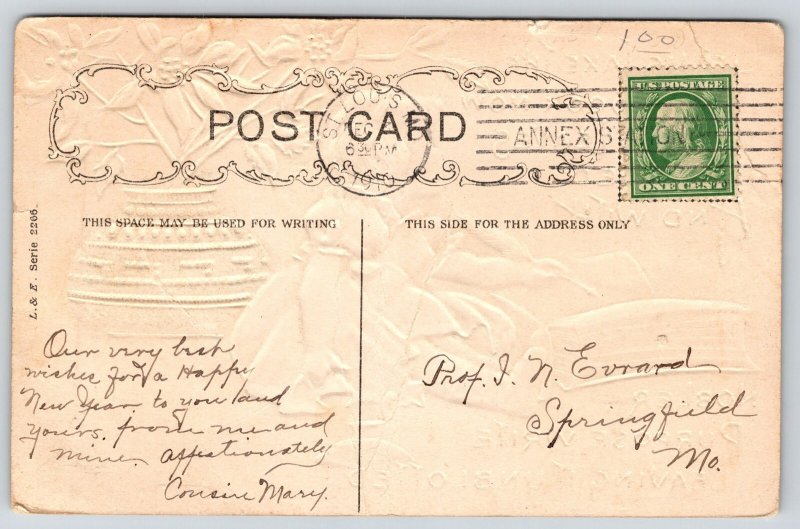 1.00
U.S. POSTAGE
ONE CENT
ST. LOUIS
DEC
6 30 PM
1910
ANNEX STATION
POST CARD
THIS SPACE MAY BE USED FOR WRITING
THIS SIDE FOR THE ADDRESS ONLY
L. & E. Serie 2266.
Our very best
wishes for a Happy
New Year to you and
yours. from me and
mine. affectionately
Cousin Mary.
Prof. J. N. Evrard
Springfield
Mo.